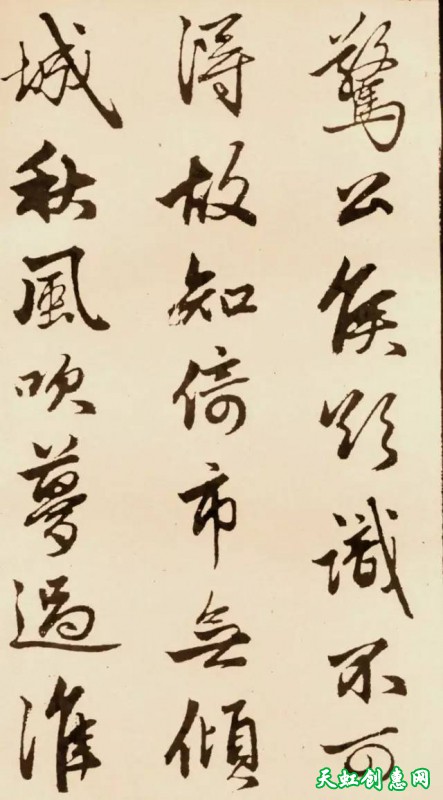 驚公侯欲識不可
得故知倚市無傾
城秋風吹夢過淮
天虹创惠网